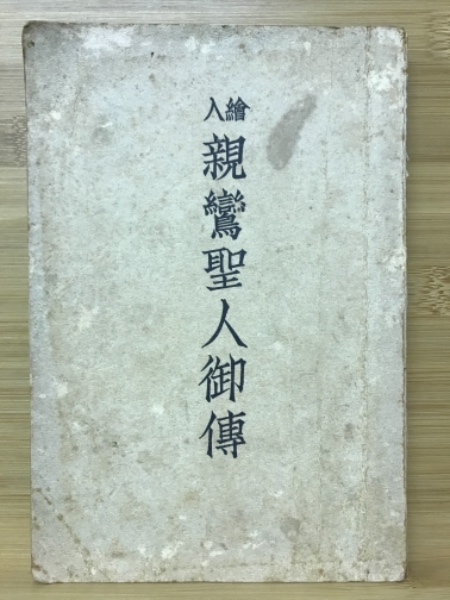 繪入
親鸞聖人御傳